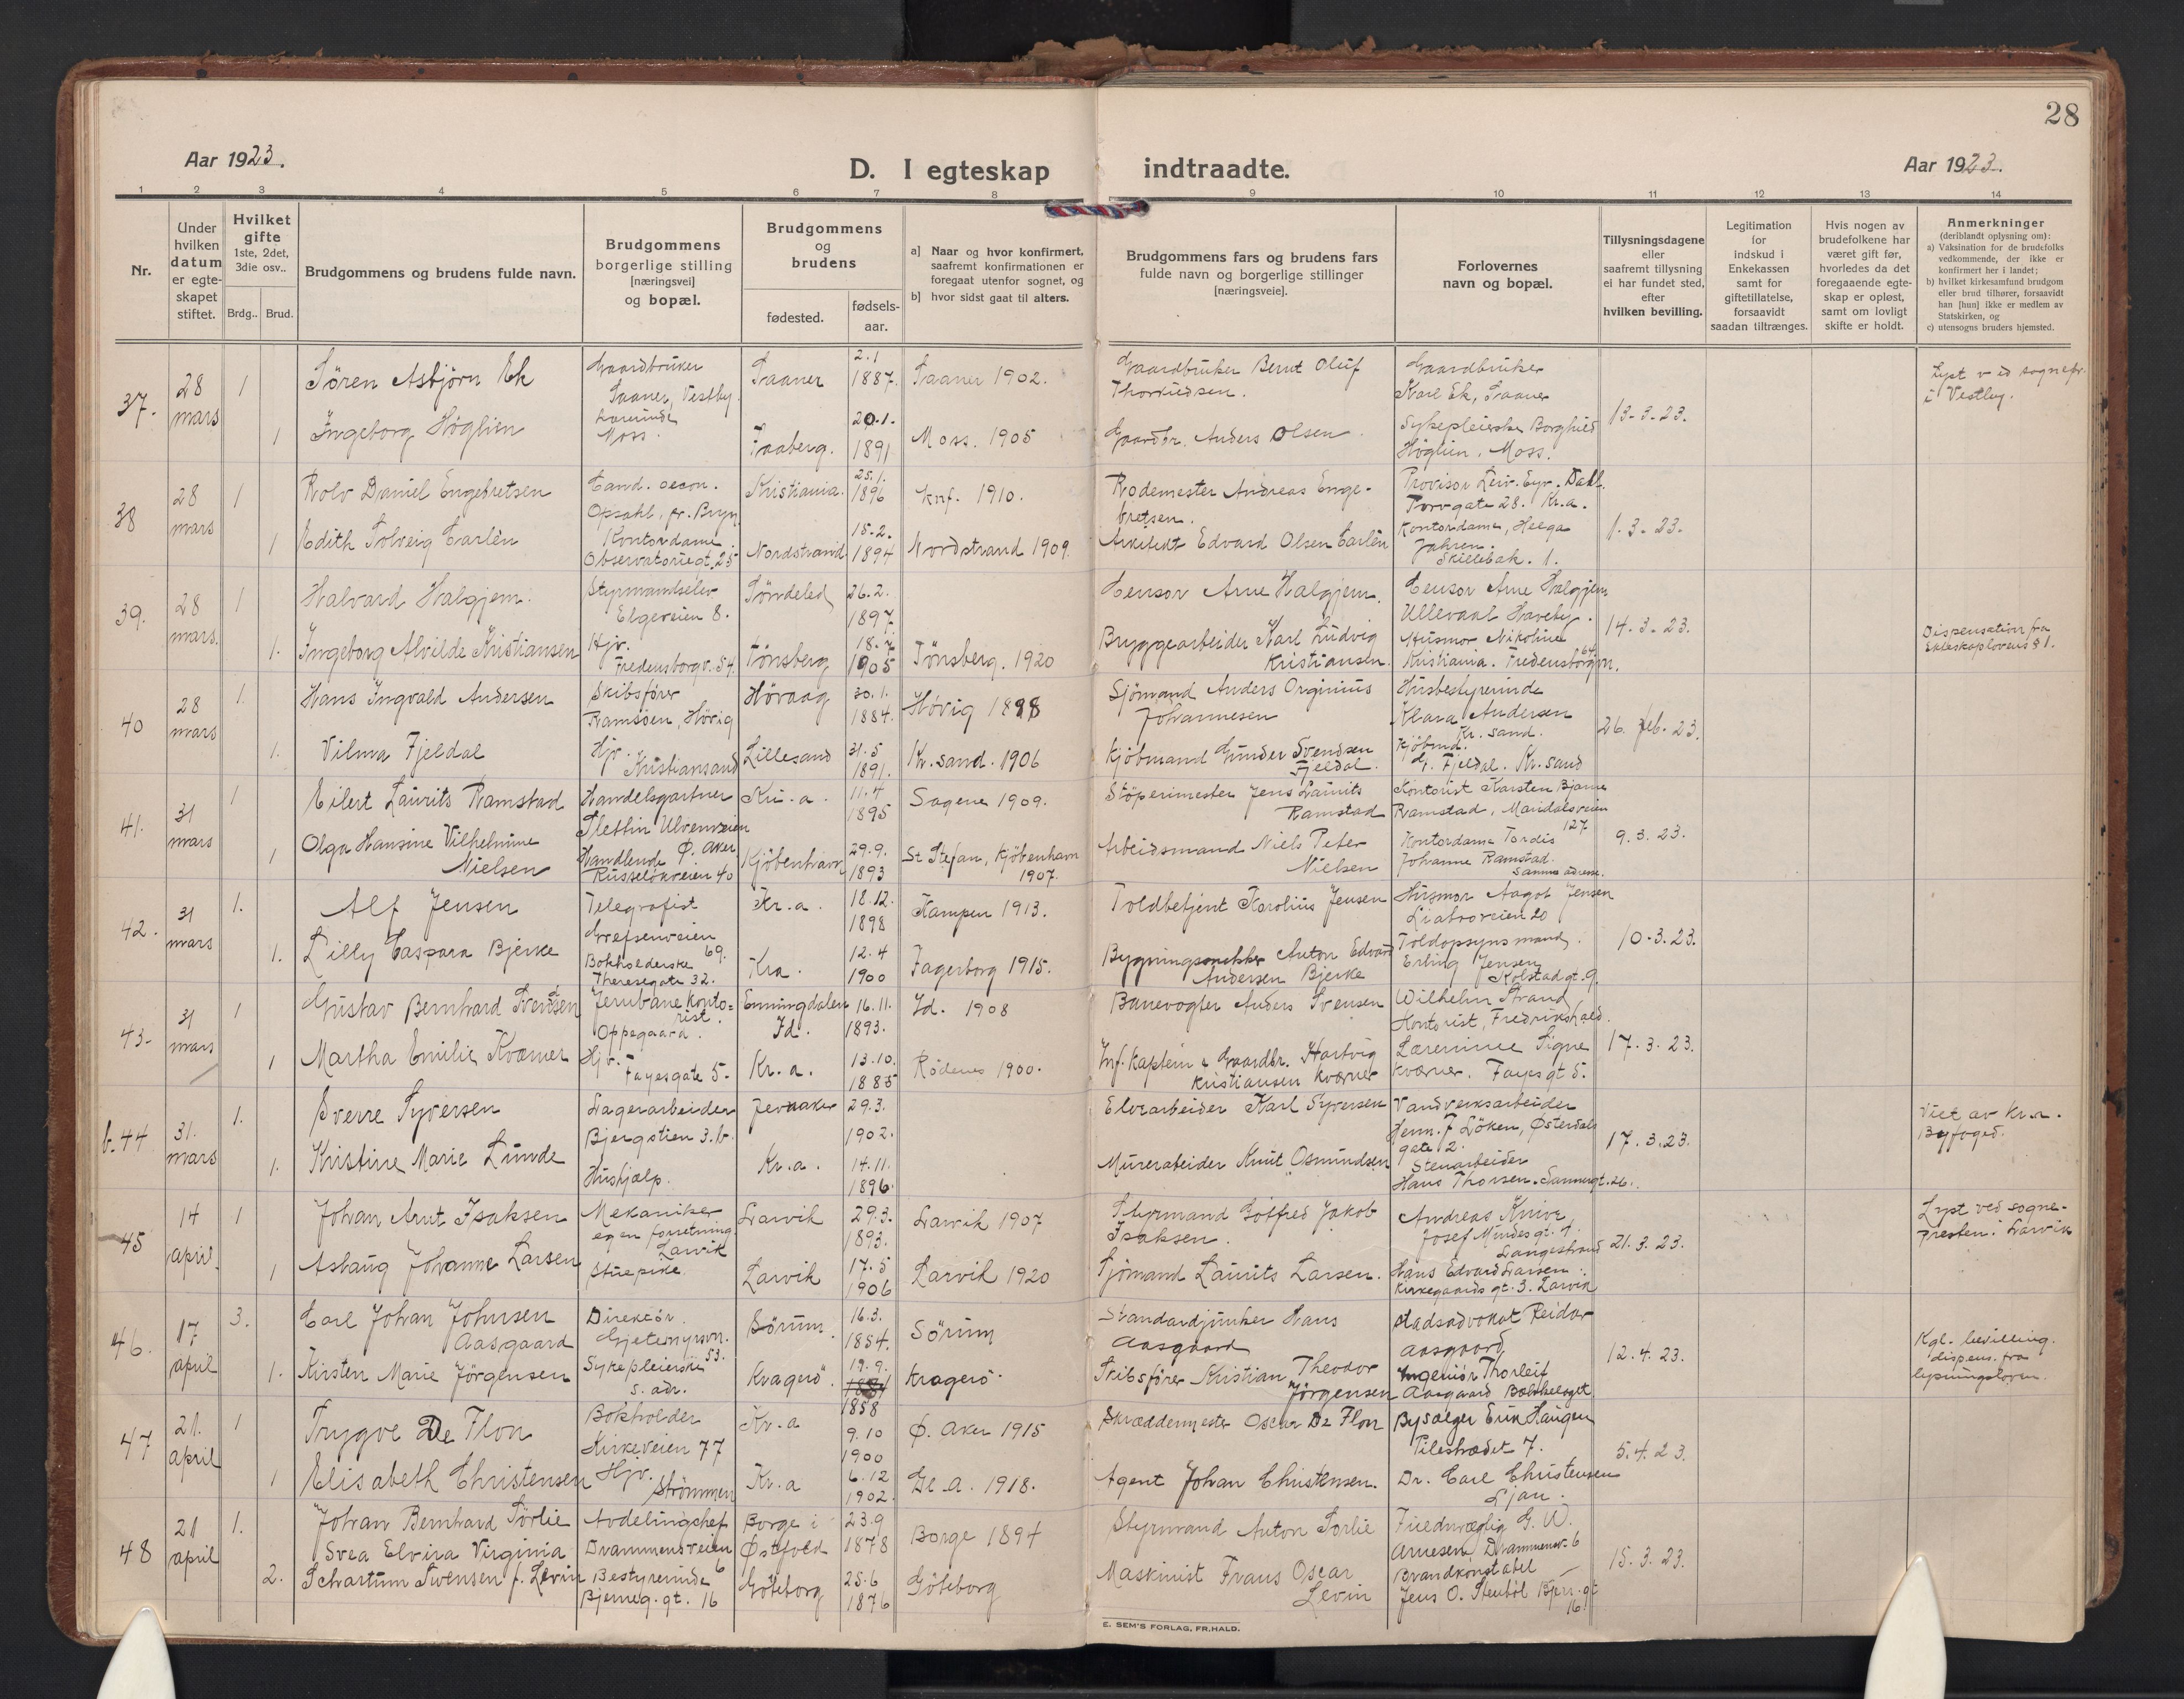 28
Aar 1923.
D. I egteskap indtraadte.
Aar 1923.
1 2 3 4 5 6 7 8 9 10 11 12 13 14
Nr.
Under hvilken datum er egte-skapet stiftet.
Hvilket gifte 1ste, 2det, 3die osv..
Brdg.. Brud.
Brudgommens og brudens fulde navn.
Brudgommens borgerlige stilling [næringsvei] og bopæl.
Brudgommens og brudens
fødested. fødsels-aar.
a] Naar og hvor konfirmert, saafremt konfirmationen er foregaat utenfor sognet, og
b] hvor sidst gaat til alters.
Brudgommens fars og brudens fars fulde navn og borgerlige stillinger [næringsveie].
Forlovernes navn og bopæl.
Tillysningsdagene eller saafremt tillysning ei har fundet sted, efter hvilken bevilling.
Legitimation for indskud i Enkekassen samt for giftetillatelse, forsaavidt saadan tiltrænges.
Hvis nogen av brudefolkene har været gift før, hvorledes da det foregaaende egte-skap er opløst, samt om lovligt skifte er holdt.
Anmerkninger (deriblandt oplysning om):
a) Vaksination for de brudefolks vedkommende, der ikke er konfirmert her i landet;
b) hvilket kirkesamfund brudgom eller brud tilhører, forsaavidt han [hun] ikke er medlem av Statskirken, og
c) utensogns bruders hjemsted.
37. 28 mars 1 Sören Asbjörn Ek Gaardbruker Saaner, Vestby. Saaner 2.1 1887. Saaner 1902. Gaardbruker Bernt Oluf Gaardbruker Karl Ek, Saaner 13-3-23. Lyst ved sognepr. i Vestby.
1 Ingeborg Höglien Lærerinde Moss. Faaberg. 20.1. 1891 Moss. 1905 Gaardbr. Anders Olsen. Sykepleierske Borghild Höglien. Moss.
38 28 mars 1 Rolv Daniel Engebretsen Cand. oecon. Opsahl, pr. Bryn Kristiania. 25.1. 1896 Knf. 1910. Rodemester Andreas Enge-bretsen. Provisor Leiv. Eyv. Dahl. Torvgate 28. Kr.a. 1.3-23.
1 Edith Solveig Carlèn Kontordame. Observatoriegt. 25 Nordstrand 15.2. 1894 Nordstrand 1909. Arkitekt Edvard Olsen Carlèn Kontordame, Helga Jahren. Skillebæk. 1.
39. 28 mars. 1 Halvard Halgjem. Styrmandselev Elgeveien 8. Söndeled 26.2. 1897. Censor Arne Halgjem. Censor Arne Halgjem Ullevaal Haveby. 14-3-23. Dispensation fra Ekteskapslovens § 1.
1. Ingeborg Alvilde Kristiansen Hjv. Fredensborgv. 54. Tønsberg 18.7 1905 Tönsberg. 1920 Bryggearbeider Karl Ludvig Kristiansen. Husmor Nikoline Kristiania. Fredensborgvn.
40 28 mars 1. Hans Ingvald Andersen Skibsfører Ramsöen, Hövig Hövaag 30.1. 1884. Hövig 1898 Sjömand Anders Orginius Johannesen Husbestyrerinde Klara Andersen Kr. sand. 26. feb. 23.
1. Vilma Fjeldal Hjv. Kristiansand Lillesand 31.5 1891. Kr. sand. 1906 Kjöbmand Gunder Svendsen Fjeldal. Kjöbmd. G. Fjeldal. Kr. sand
41. 31 mars 1 Eilert Laurits Ramstad Handelsgartner Ulvenveien Ø. Aker Kr.a. 11.4 1895 Sagene 1909. Stöperimester Jens Laurits Ramstad Kontorist Karsten Bjarne Ramstad, Maridalsveien 127 9.3.23.
1 Olga Hansine Vilhelmine Nielsen Handlende Russelökveien 40 Kjöbenhavn 29.9. 1893 St Stefan, Kjöbenhavn 1907. Arbeidsmand Niels Peter Nielsen Kontordame Tordis Johanne Ramstad. samme adresse.
42. 31 mars 1. Alf Jensen Telegrafist Grefsenveien 69. Kr.a. 18.12. 1898 Kampen 1913. Toldbetjent Karolius Jensen Husmor Aagot Jensen Liabroveien 20 10-3.23.
1. Lilly Caspara Bjerke Bokholderske Theresegate 32. Kra. 12.4 1900 Fagerborg 1915. Anton Edvard Andersen Bjerke Toldopsynsmand. Erling Jensen Kolstadgt. 9.
43. 31 mars 1 Gustav Bernhard Svendsen Jernbanekonto=rist. Oppegaard. Enningdalen Id. 16.11. 1893. Id. 1908 Banevogter Anders Svensen Wilhelm Strand Kontorist, Fredrikshald. 17.3.23.
1 Martha Emilie Kværner Hjv. Fayesgate 5. Kr.a. 13.10. 1885 Rödenes 1900. Inf. Kaptein & Gaardbr. Hartvig Kristiansen Kværner Lærerinne Signe Kværner. Fayes gt 5.
b.44 31. mars 1. Sverre Syversen Lagerarbeider Bjergstien 3.b. Jevnaker 29.3. 1902. Elvearbeider Karl Syversen Vandverksarbeider Herm. F Löken, Østerdals gate 2. 17.3.23. Viet av Kr.a. Byfoged.
1. Kristine Marie Lunde Hushjælp. Kr.a. 14.11. 1896. Murerabeider Knut Osmundsen Stenarbeider Hans Thorsen. Sannergt. 26.
45 14 april. 1 Johan Arnt Isaksen Mekaniker egen forretning. Larvik Larvik 29.3. 1893. Larvik 1907 Styrmand Gotfred Jakob Isaksen. Andreas Knive, Josef Mindes gt. 4 Langestrand 21.3.23. Lyst ved sogne-presten i Larvik
1 Aslaug Johanne Larsen Stuepike. Larvik 17.5 1906 Larvik 1920 Sjömand Laurits Larsen. Hans Edvard Larsen. Kirkegaards gt. 3. Larvik
46. 17 april 3. Carl Johan Johnsen Aasgaard Direktör. Gjetemyrsvn. 53. Sörum. 16.3. 1854. Sörum Standardjunker Hans Aasgaard Hadsadvokat Reidar Aasgaard 12.4.23. Kgl. bevilling. dispens. fra lysningsloven.
1. Kirsten Marie Jörgensen Sykepleierske s. adr. Kragerö. 19.9. 1858 Kragerö. Skibsförer Kristian Theodor Jörgensen Ingeniör Thorleif Aasgaard
47 21. april 1 Trygve De Flon Bokholder Kirkeveien 77 Kr.a 9.10 1900 Ø. Aker 1915 Skræddermester Oscar De Flon Bysælger Erik Haugen Pilestrædet 7. 5.4.23.
1 Elisabeth Christensen Hjv. Strömmen Kr.a 6.12 1902. 1918. Agent Johan Christensen. Dr. Carl Christensen Ljan.
48 21 april 1. Johan Bernhard Sörlie Avdelingschef Drammensveien 6 Borge i Østfold 23.9 1878 Borge 1894 Styrmand Anton Sorlie G. W. Arnesen Drammensv. 6 15.3.23.
2. Svea Elvira Virginia Schartum Svensen f. Levin Bestyrerinde Bjerreg. gt. 16 Göteborg 25.6 1876 Göteborg Maskinist Frans Oscar Levin Brandkonstabel Jens O. Stenböl Bjerr. gt 16
E. SEM'S FORLAG, FR.HALD.